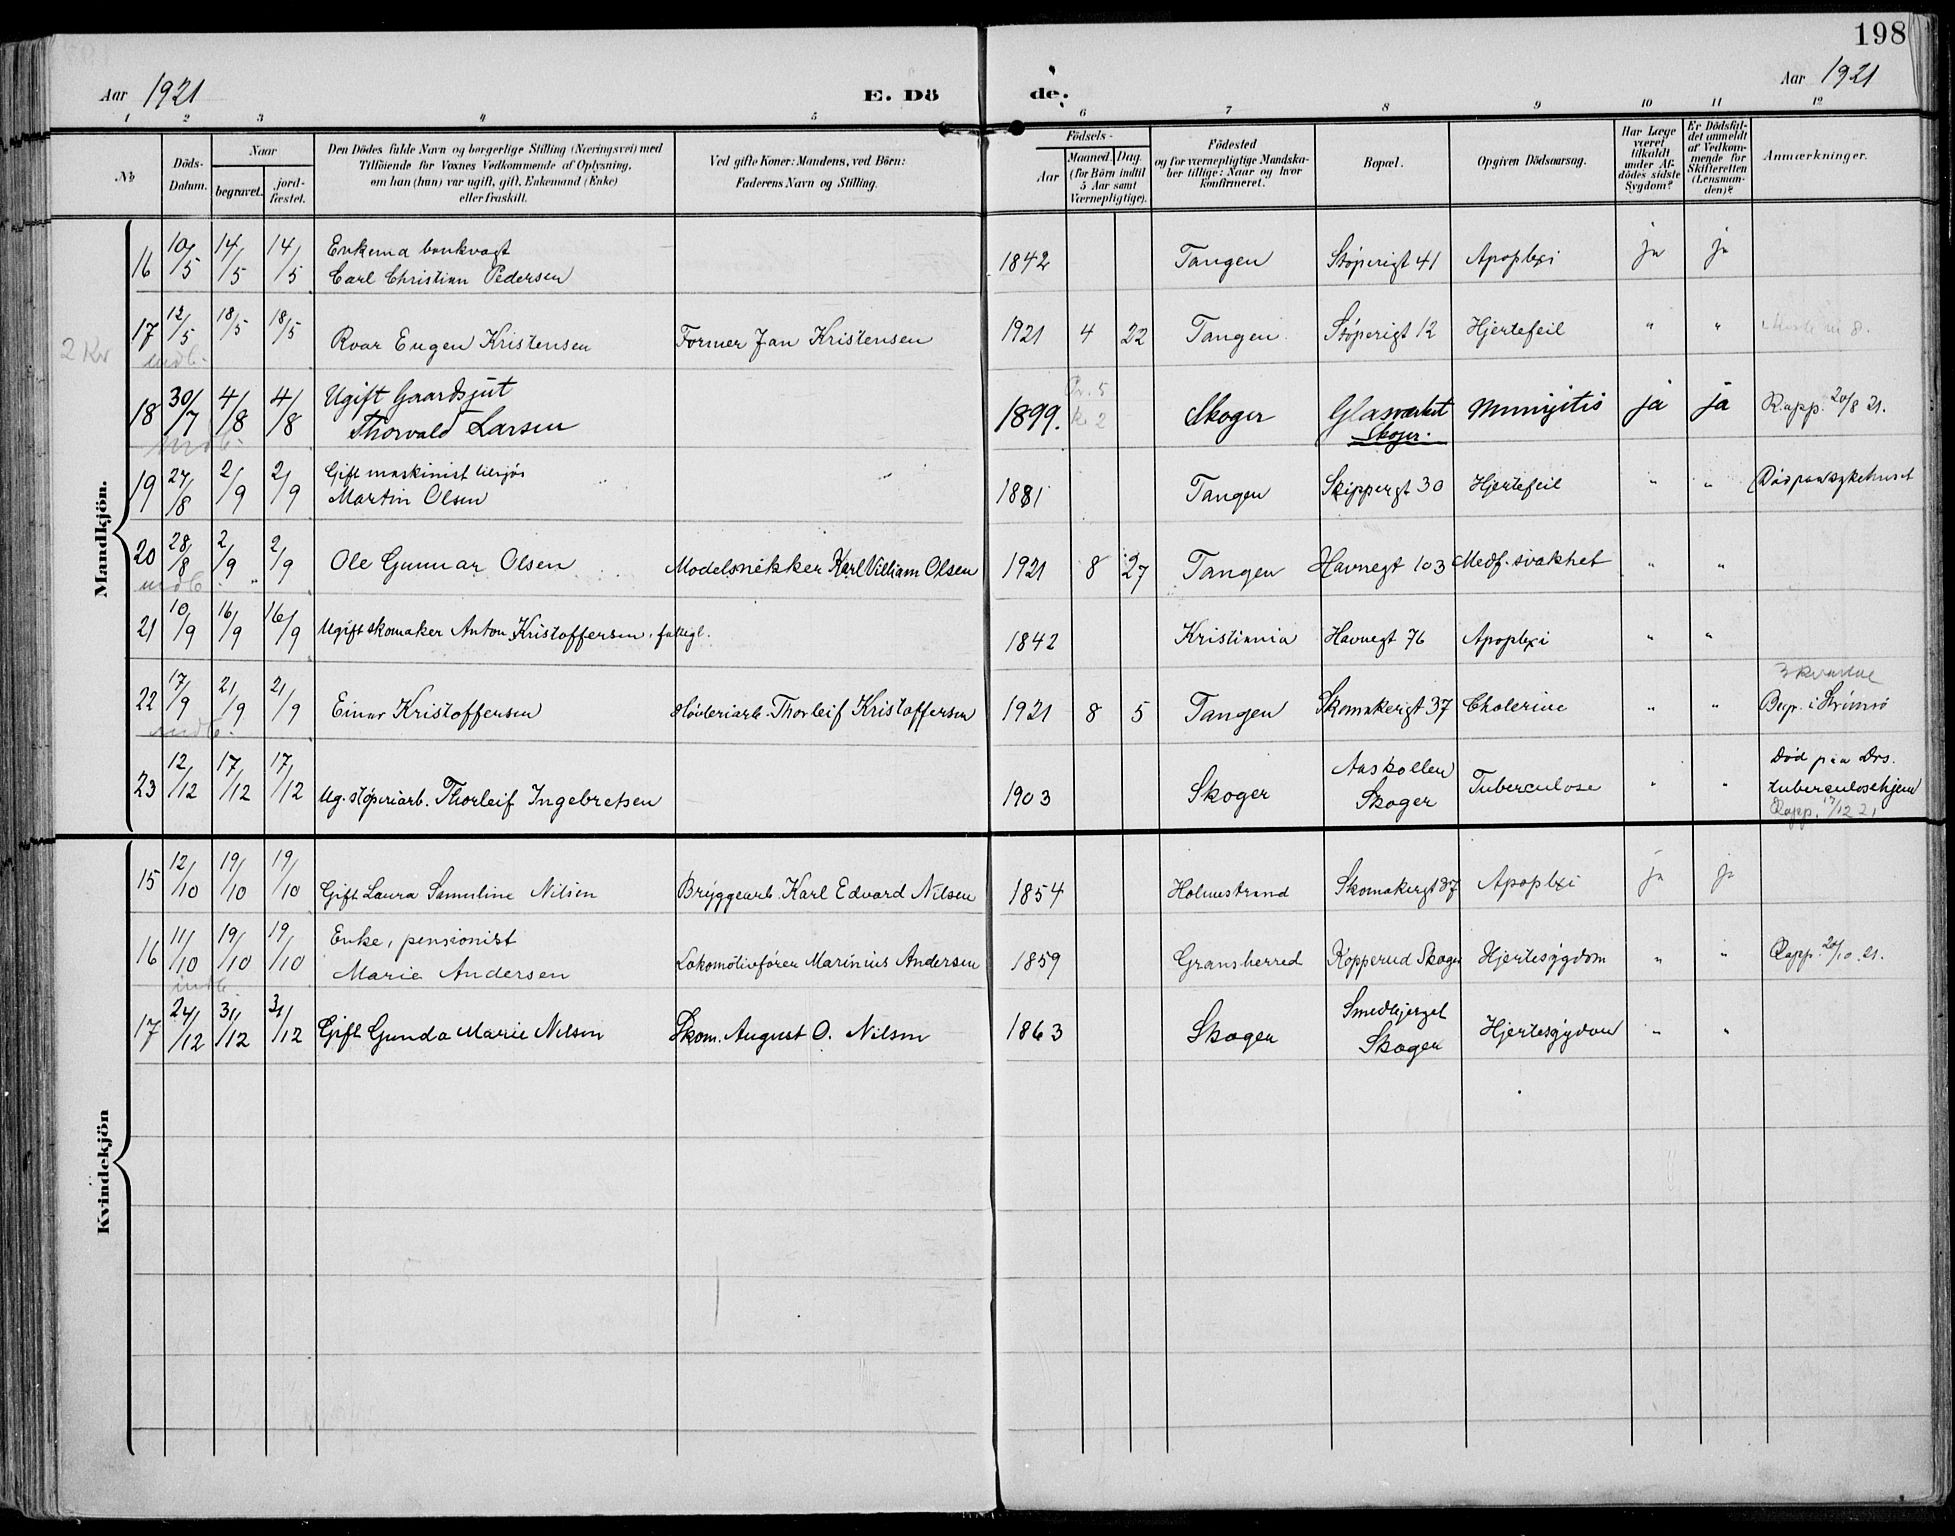 198
Aar 1921 E. Dö de. Aar 1921
1 2 3 4 5 6 7 8 9 10 11 12
№
Döds-Datum.
Naar
begravet.
jord-fæstet.
Den Dödes fulde Navn og borgerlige Stilling (Næringsvei) med
Tilföiende for Voxnes Vedkommende af Oplysning,
om han (hun) var ugift, gift, Enkemand (Enke)
eller fraskilt.
Ved gifte Koner: Mandens, ved Börn:
Faderens Navn og Stilling.
Födsels-
Aar
Maaned. Dag.
(for Börn indtil
5 Aar samt
Værnepligtige).
Födested
og for værnepligtige Mandska-
ber tillige: Naar og hvor
konfirmeret.
Bopæl.
Opgiven Dödsaarsag.
Har Læge
været
tilkaldt
under Af-
dödes sidste
Sygdom?
Er Dödsfal-
det anmeldt
af Vedkom-
mende for
Skifteretten
(Lensman-
den)?
Anmærkninger.
Mandkjön.
16 10/5 14/5 14/5 Enkema bankvagt
Carl Christian Pedersen 1842 Tangen Støperigt 41 Apoplexi ja ja
2 Kv
17 12/5 18/5 18/5 Roar Eugen Kristensen Former Jan Kristensen 1921 4 22 Tangen Støperigt 12 Hjertefeil " "
indb.
18 30/7 4/8 4/8 Ugift Gaardsgut
Thorvald Larsen 1899. Skoger Glasværket Skoger. ja ja Rapp. 20/8 21.
indb.
19 27/8 2/9 2/9 Gift maskinist tilsjøs
Martin Olsen 1881 Tangen Skippergt 30 Hjertefeil " " Død paa sykehuset
20 28/8 2/9 2/9 Ole Gunnar Olsen Modelsnekker Karl William Olsen 1921 8 27 Tangen Havnegt 103 Medf. svakhet " "
indb
21 10/9 16/9 16/9 Ugift skomaker Anton Kristoffersen, fattigl. 1842 Kristiania Havnegt 76 Apoplexi " "
22 17/9 21/9 21/9 Einar Kristoffersen Høvleriarb. Thorleif Kristoffersen 1921 8 5 Tangen Skomakerigt 37 Cholerine " " Begr. i Strømsø
indb.
23 12/12 17/12 17/12 Ug. støperiarb. Thorleif Ingebretsen 1903 Skoger Aaskollen
Skoger Tuberculose " " Død paa Drs.
tuberculosehjem
Rapp. 17/12 21
Kvindekjön
15 12/10 19/10 19/10 Gift Laura Samuline Nilsen Bryggearb. Karl Edvard Nilsen 1854 Holmestrand Skomakergt 37 Apoplexi ja ja
16 11/10 19/10 19/10 Enke, pensionist
Marie Andersen Lokomotivfører Marinius Andersen 1859 Gransherred Kopperud Skoger Hjertesygdom " " Rapp. 20/10 21.
indb
17 24/12 31/12 31/12 Gift Gunda Marie Nilsen Skom. August O. Nilsen 1863 Skoger Smedbjerget
Skoger Hjertesygdom " "